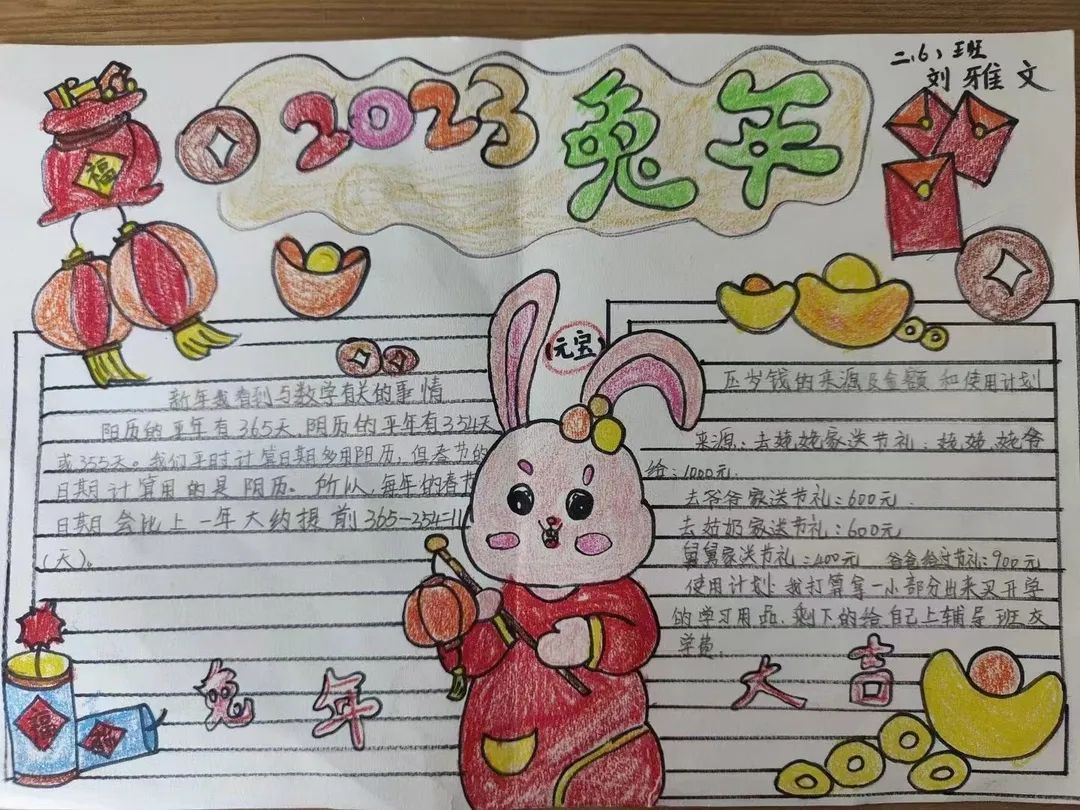 二、6、班
刘雅文
2023 兔年
福
元宝
新年我看到与数学有关的事情
阳历的平年有365天,阴历的平年有354天
或355天。我们平时计算日期多用阳历,但春节的
日期计算用的是阴历。所以,每年的春节
日期会比上一年大约提前365-354=11
(天)。
压岁钱的来源及金额和使用计划
来源:去姥姥家送节礼:姥姥,姥爷
给:1000元.
去爷爷家送节礼:600元.
去奶家送节礼:600元
舅舅家送节礼:400元 爸爸给过节礼:900元
使用计划:我打算拿一小部分出来买开学
的学习用品,剩下的给自己上辅导班交
学费.
兔年
大吉
福
福